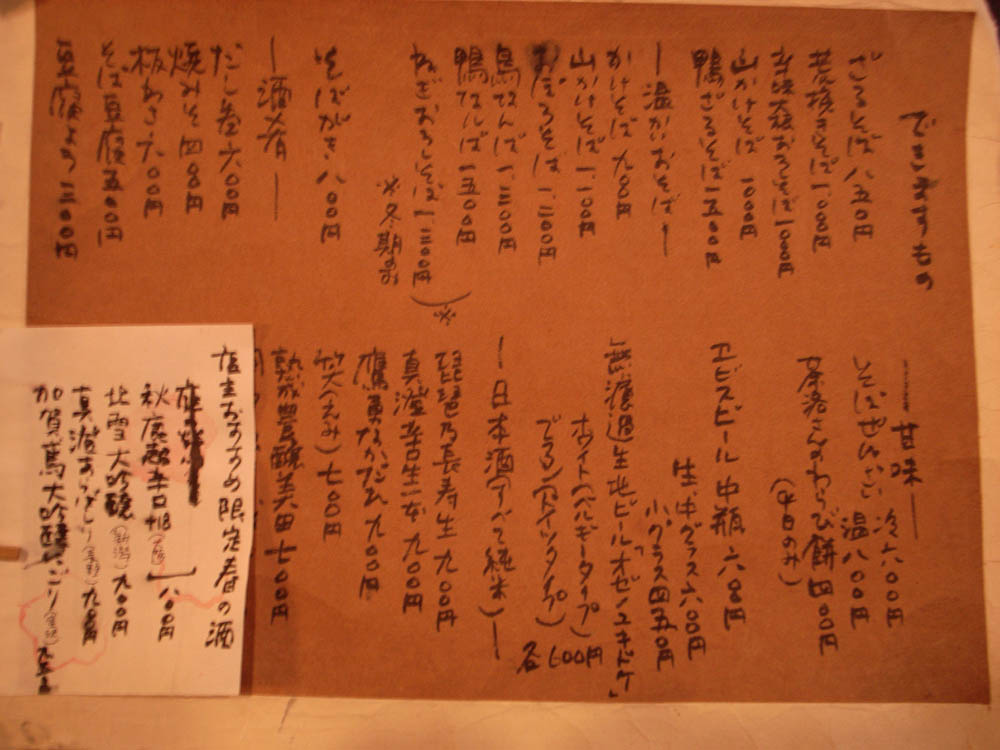 できますもの
ざるそば 八五〇円
山かけそば 一〇〇〇円
鴨ざるそば 一五〇〇円
―温かいおそば―
かけそば 九〇〇円
山かけそば 一、一〇〇円
おぼろそば 一、三〇〇円
鳥なんば 一、三〇〇円
鴨なんば 一五〇〇円
ねぎおろしそば 一、三〇〇円
※冬期のみ
そばがき 八〇〇円
―酒肴―
だし巻 六〇〇円
焼みそ 四〇〇円
板わさ 六〇〇円
そば豆腐 五〇〇円
―甘味―
そばぜんざい 冷 六〇〇円
温 八〇〇円
わらび餅 四〇〇円
(平日のみ)
ヱビスビール中瓶 六〇〇円
生、中グラス 六〇〇円
小グラス 四五〇円
ホワイト(ベルギータイプ)
各 600円
―日本酒(すべて純米)―
琵琶乃長寿 生 九〇〇円
真澄 辛口生一本 九〇〇円
鷹勇 なかだれ 九〇〇円
笑(えみ) 七〇〇円
熟成豊醸美田 七〇〇円
店主おすすめ限定春の酒
秋鹿 辛口 +18 (大阪) 八〇〇円
北雪 大吟醸 (新潟) 九〇〇円
真澄 あらばしり (長野) 九〇〇円
加賀鳶 大吟醸にごり (金沢)